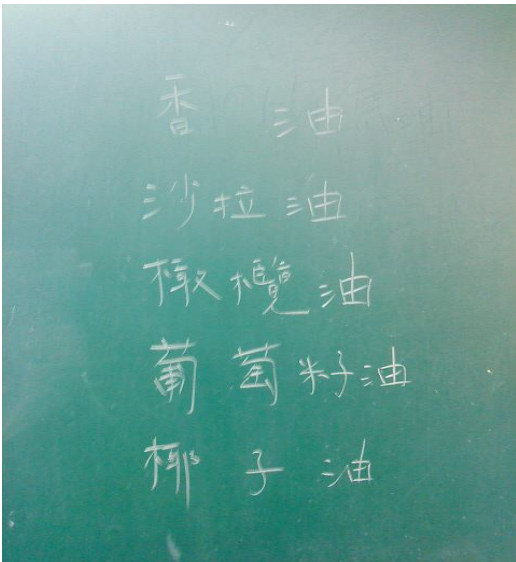 香油
沙拉油
橄欖油
葡萄籽油
椰子油